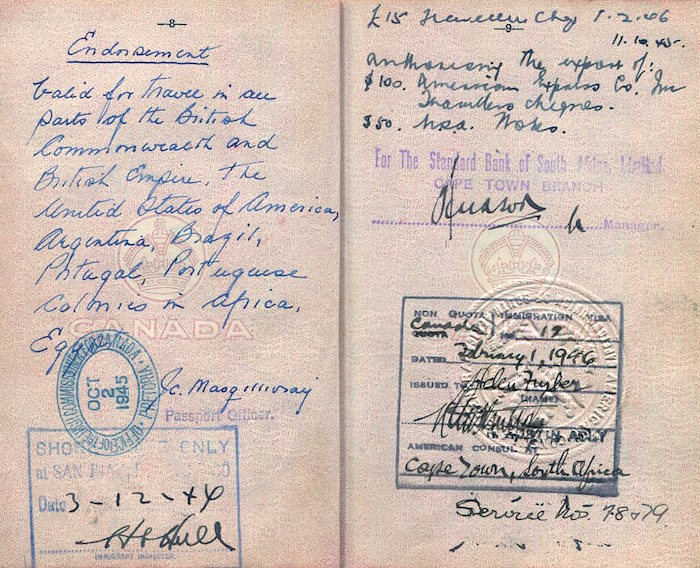 8
Endorsement
Valid for travel in all
parts of the British
Commonwealth and
British Empire, the
United States of America,
Argentina, Brazil,
Portugal, Portuguese
Colonies in Africa,
Egypt
CANADA
OCT
2
1945
Passport Officer.
SHORE ONLY
at SAN
Date 3-12-44
Hull
IMMIGRANT INSPECTOR
9
£15 Travellers Chqs 1.2.46
11.10.45.
Authorising the export of:
$100. American Express Co. Inc
Travellers cheques.
$50. U.S.A. Notes.
For The Standard Bank of South Africa, Limited
CAPE TOWN BRANCH
Manager.
NON QUOTA IMMIGRATION VISA
Canada 12
QUOTA
DATED February 1, 1946
ISSUED TO
(NAME)
AMERICAN CONSUL AT
Cape Town, South Africa
Service Nos. 78 & 79.